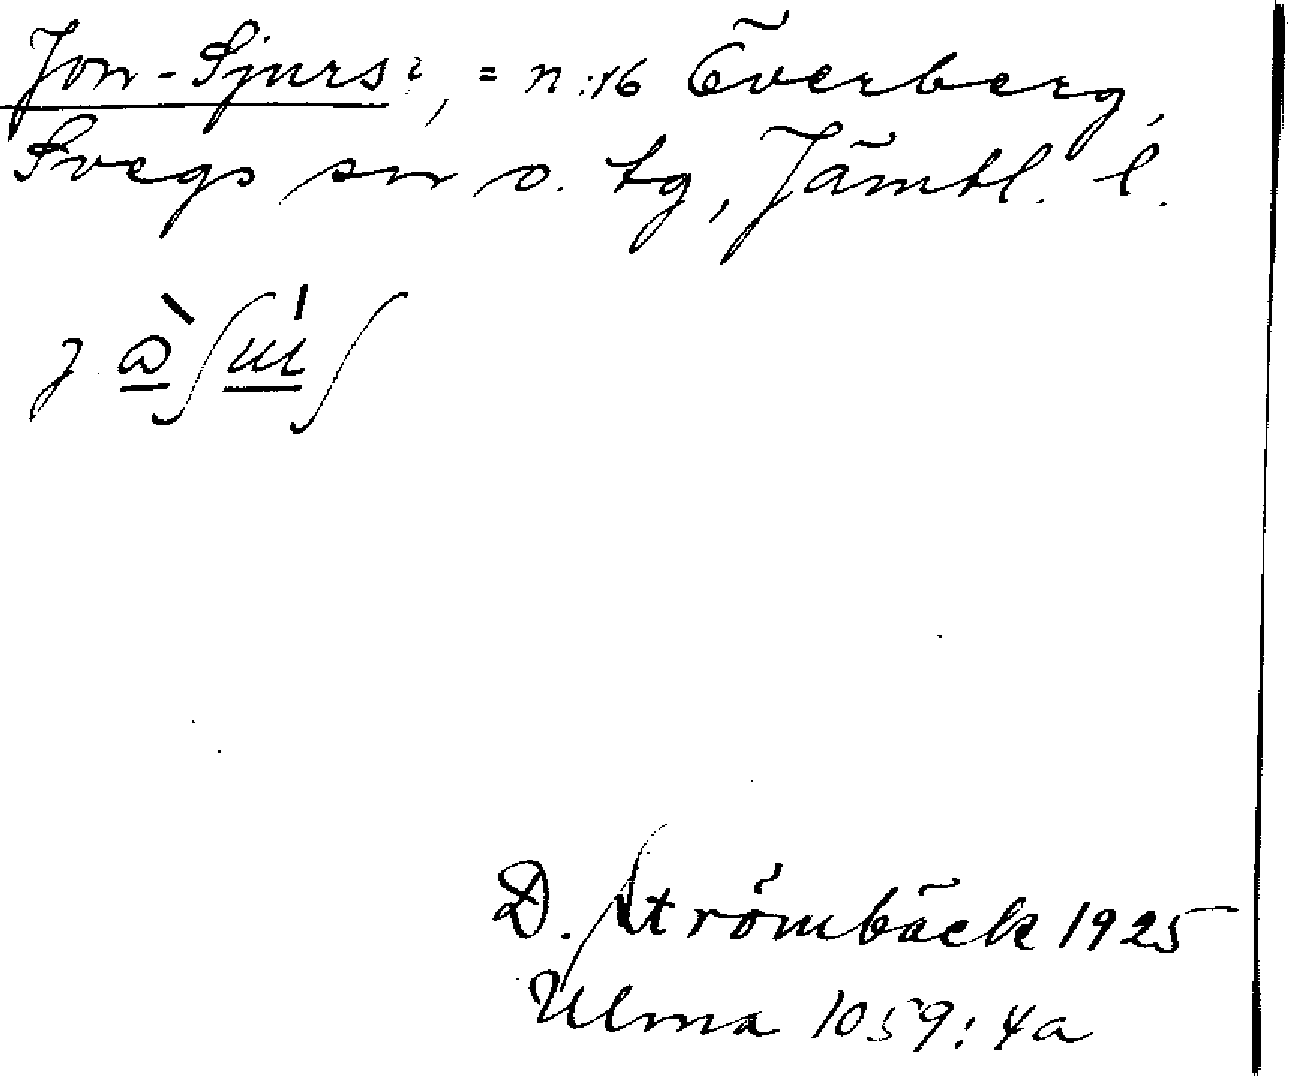 Jon-Sjurs?, = n:16 Överberg,
Svegs sn o. tg, Jämtl. l.
D. Strömbäck 1925
Ulma 1059:4a